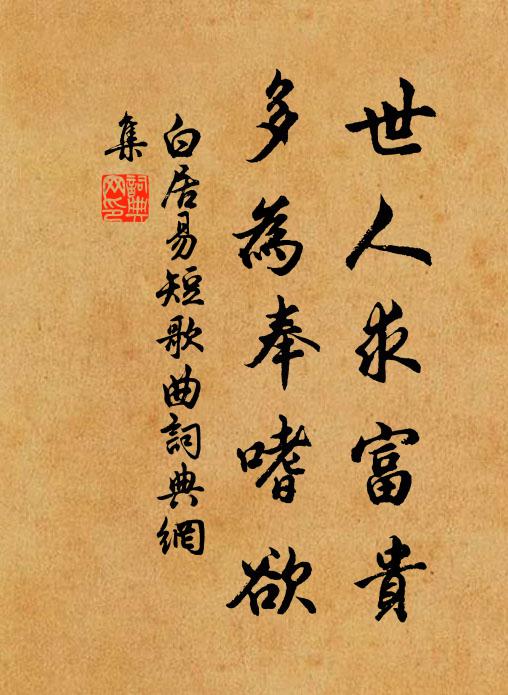 世人求富貴
多為奉嗜欲
白居易短歌曲詞典網
集
詞典
网印